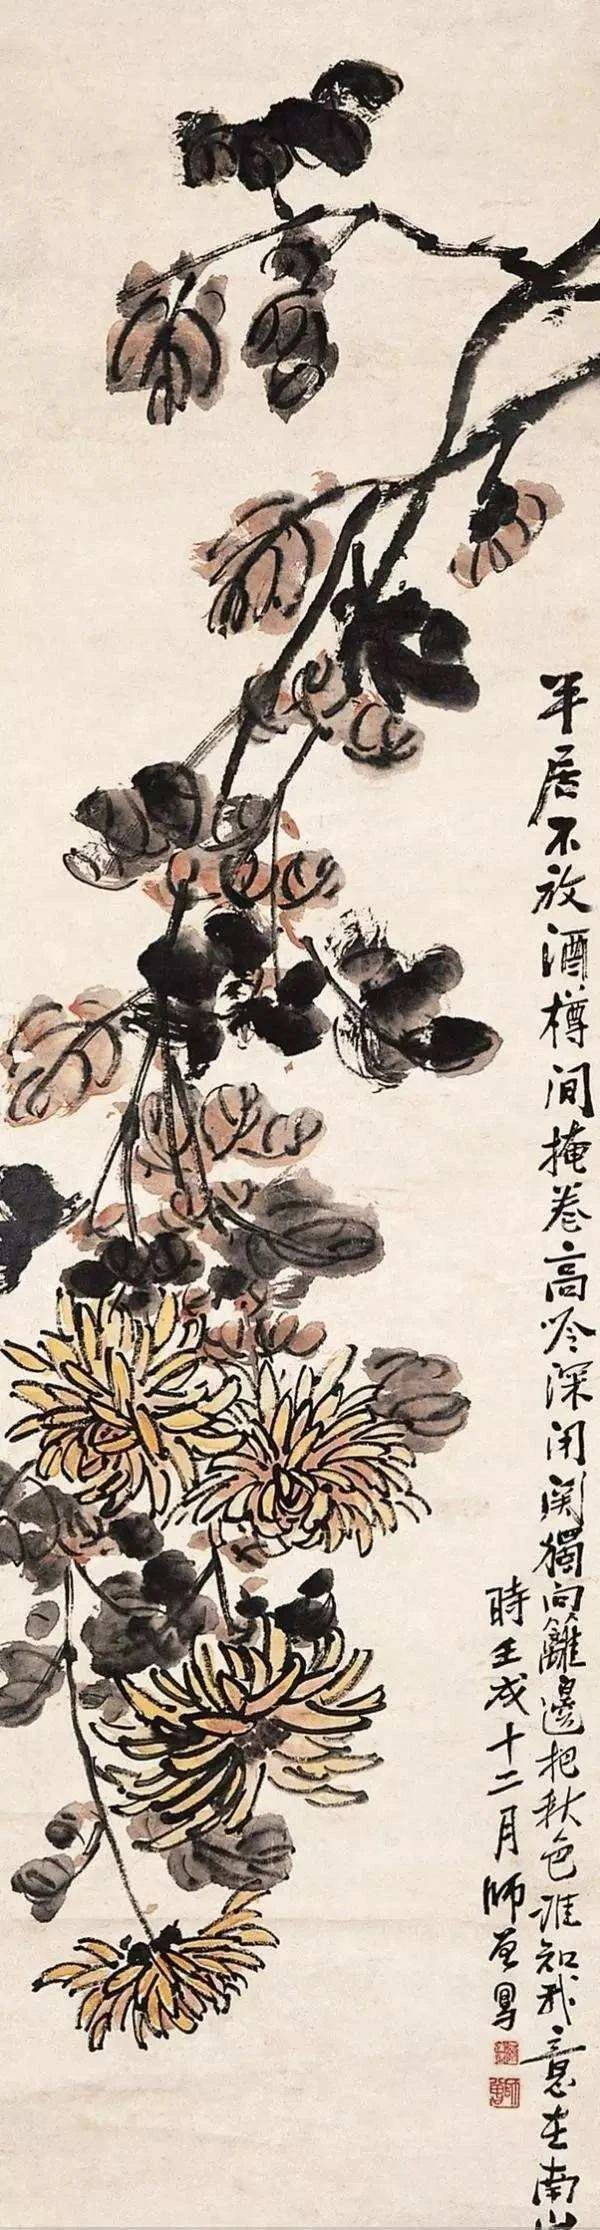 平居不放酒樽間掩卷高吟深閉關獨向籬邊把秋色誰知我意在南山
時壬戌十二月師曾寫